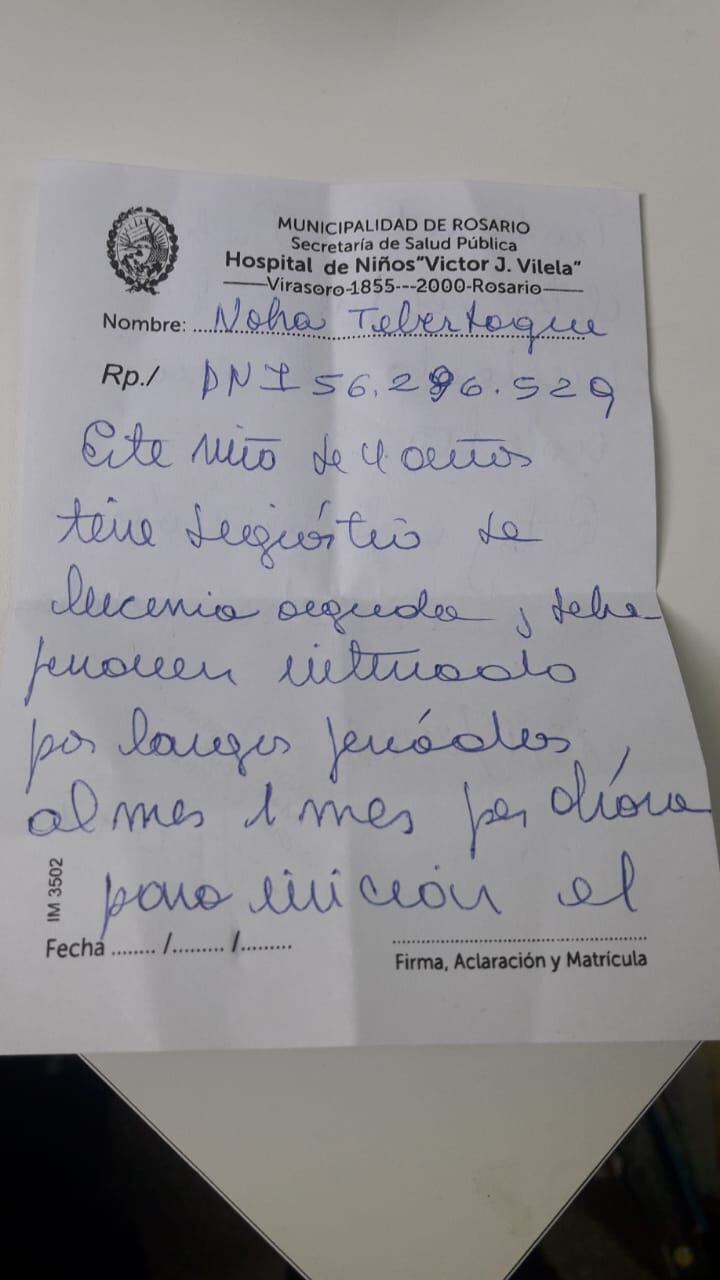 MUNICIPALIDAD DE ROSARIO
Secretaría de Salud Pública
Hospital de Niños "Victor J. Vilela"
Virasoro-1855---2000-Rosario
Nombre: Noha
Rp./ DNI 56.296.529
Este niño de 4 años
tiene diagnóstico de
leucemia aguda, debe
permanecer internado
por largos períodos,
al mes 1 mes por ahora
para iniciar el
IM 3502
Fecha ........ /......... /.........
Firma, Aclaración y Matrícula